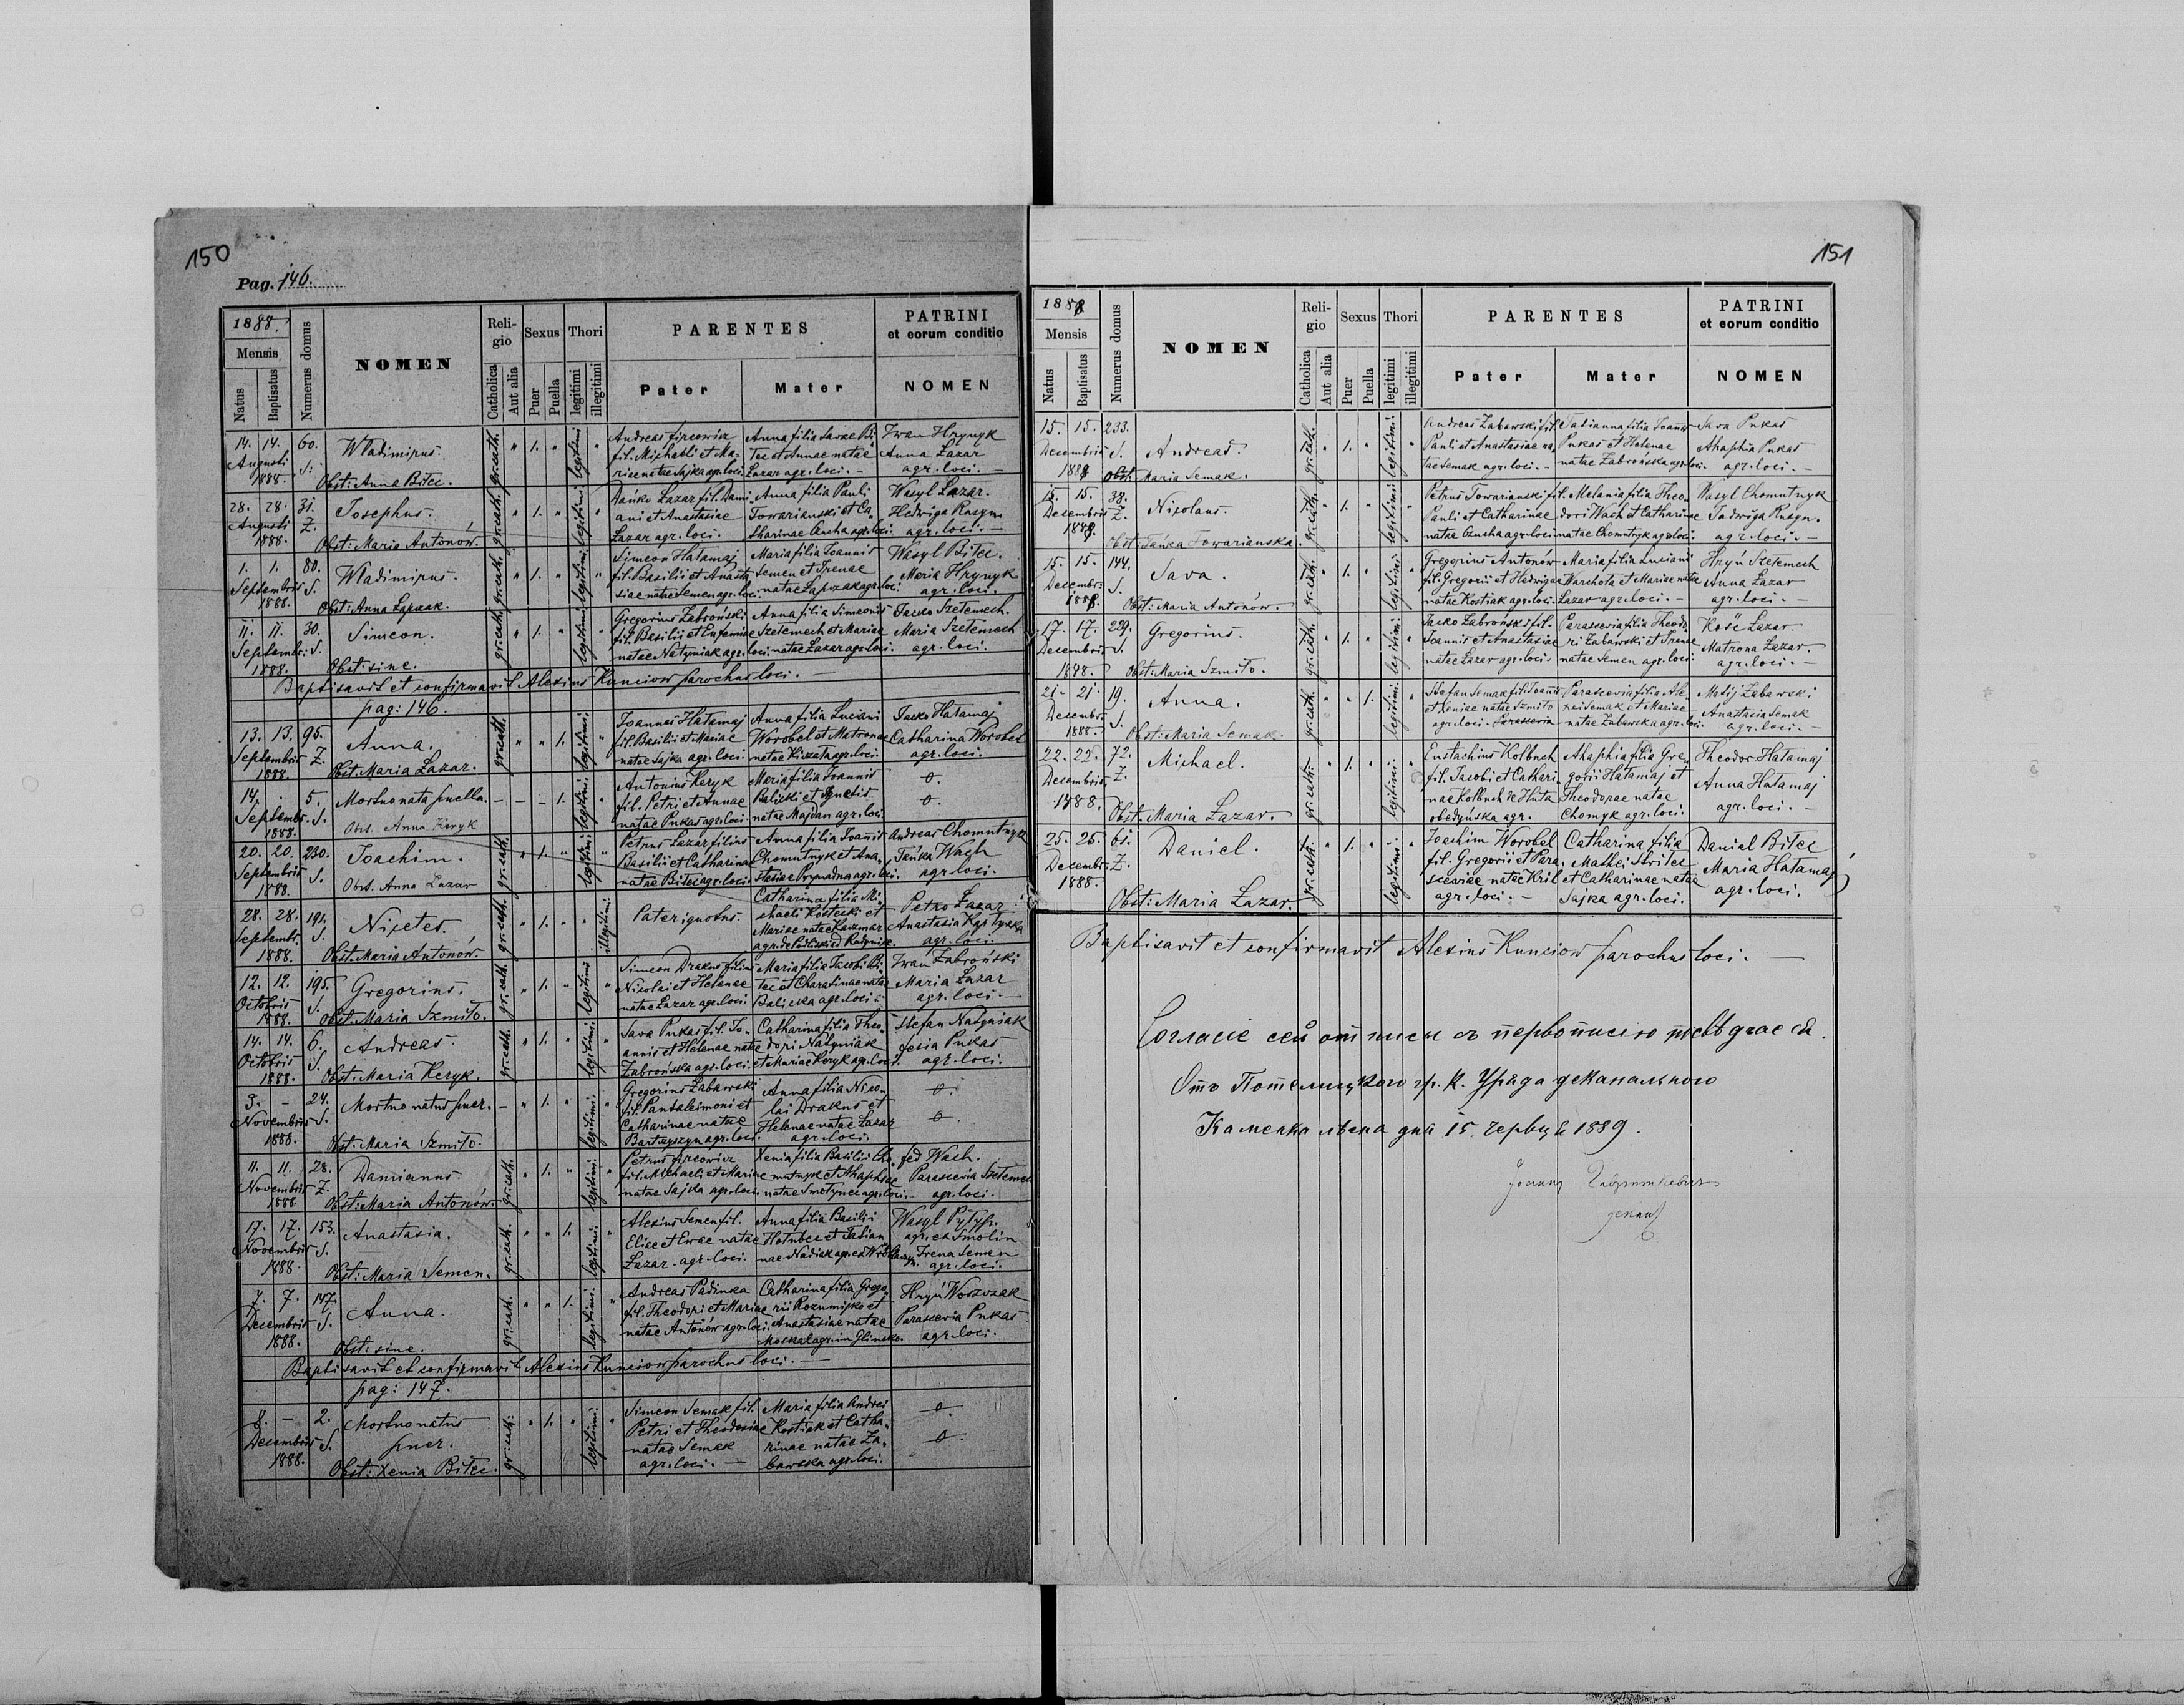 150
Pag. 146.
1888.
Mensis
Natus
Baptisatus
Numerus domus
NOMEN
Religio
Catholica
Aut alia
Sexus
Puer
Puella
Thori
legitimi
illegitimi
PARENTES
Pater
Mater
PATRINI
et eorum conditio
NOMEN
14. 14. 60. Wladimirus. gr. cath. " 1. " legitimi "
Augusti S.
1888. Obst: Anna Bitec.
Andreas
fil. Michaeli et Ma-
riae natae Sajka agr. loci.
Anna filia Savae Bi-
tec et Annae natae
Lazar agr. loci. —
Iwan Hrynyk
Anna Lazar
agr. loci. —
28. 28. 31. Josephus. gr. cath. " 1. " legitimi "
Augusti Z.
1888. Obst: Maria Antonów.
Dańko Lazar fil. Dami-
ani et Anastasiae
Lazar agr. loci.
Anna filia Pauli
Towarianski et Ca-
tharinae agr. loci.
Wasyl Lazar.
Hedwiga Rusyn
agr. loci. —
1. 1. 80. Wladimirus. gr. cath. " 1. " legitimi "
Septembris S.
1888. Obst: Anna Lapczak.
Simeon Hatamaj
fil. Basilii et Anasta-
siae natae Semen agr. loci.
Maria filia Joannis
Semen et Irenae
natae Lapczak agr. loci.
Wasyl Bitec.
Maria Hrynyk
agr. loci.
11. 11. 30. Simeon. gr. cath. " 1. " legitimi "
Septembr: S.
1888. Obst: sine.
Gregorius Zabroński
fil. Basilii et Eufemiae
natae Natyniak agr. loci.
Anna filia Simeonis
Szetemech et Mariae
natae Lazar agr. loci.
Jacko Szetemech.
Maria Szetemech
agr. loci.
Baptisavit et confirmavit Alexius Kunciow parochus loci. —
pag: 146.
13. 13. 95. Anna. gr. cath. " " 1. legitimi "
Septembris Z.
1888. Obst: Maria Lazar.
Joannes Hatamaj
fil. Basilii et Mariae
natae Sajka agr. loci.
Anna filia Luciani
Worobel et Matronae
natae agr. loci.
Jacko Hatamaj
Catharina Worobel
agr. loci.
14. . 5. Mortuo nata puella. — — — 1. legitimi "
Septembr. S.
1888. Obst. Anna
Antonius Keryk
fil. Petri et Annae
natae Pukas agr. loci.
Maria filia Joannis
Balicki et Agnetis
natae Majdan agr. loci.
0.
0.
20. 20. 230. Joachim. gr. cath. " 1. " legitimi "
Septembris S.
1888. Obst. Anna Lazar
Petrus Lazar filius
Basilii et Catharinae
natae Bitec agr. loci.
Anna filia Joannis
Chomutnyk et Ana-
stasiae agr. loci.
Andreas Chomutnyk
Tańka Wach
agr. loci.
28. 28. 191. Nicetes. gr. cath. " 1. " " illegitimi
Septembr. S.
1888. Obst: Maria Antonów.
Pater ignotus.
Catharina filia Mi-
chaeli Kostecki et
Mariae natae
agr. de
Petro Lazar
Anastasia
agr. loci.
12. 12. 195. Gregorius. gr. cath. " 1. " legitimi "
Octobris S.
1888. Obst: Maria Szmiło.
Simeon Drakus filius
Nicolai et Helenae
natae Lazar agr. loci.
Maria filia Jacobi Bi-
tec et Charatinae natae
Balicka agr. loci.
Iwan Zabroński
Maria Lazar
agr. loci. —
14. 14. 6. Andreas. gr. cath. " 1. " legitimi "
Octobris S.
1888. Obst: Maria Keryk.
Sava Pukas fil. Jo-
annis et Helenae natae
Zabrońska agr. loci.
Catharina filia Theo-
dori Natyniak
et Mariae Keryk agr. loci.
Stefan Natyniak
Fesia Pukas
agr. loci.
3. — 24. Mortuo natus puer. — " 1. " legitimi "
Novembris S.
1888. Obst: Maria Szmiło.
Gregorius Zabawski
fil. Pantaleimoni et
Catharinae natae
agr. loci.
Anna filia Nico-
lai Drakus et
Helenae natae Lazar
agr. loci.
0.
0.
11. 11. 28. Damianus. gr. cath. " 1. " legitimi "
Novembris Z.
1888 Obst: Maria Antonów.
Petrus
fil. Michaeli et Mariae
natae Sajka agr. loci.
Xenia filia Basilii Cho-
mutnyk et Ahaphiae
natae agr. loci.
Fed Wach.
Parascevia Szetemech
agr. loci.
17. 17. 153. Anastasia. gr. cath. " " 1. legitimi "
Novembris S.
1888. Obst: Maria Semen.
Alexius Semen fil.
Eliae et Evae natae
Lazar. agr. loci.
Anna filia Basilii
et Tatian-
nae
Wasyl
agr. ex Smolin
Irena Semen
agr. loci.
7. 7. 147. Anna. gr. cath. " " 1. legitimi "
Decembris S.
1888. Obst: sine.
Andreas Padinka
fil. Theodori et Mariae
natae Antonów agr. loci.
Catharina filia Grego-
rii et
Anastasiae natae
Moskal agr. in Glinsko.
Hryń
Parascevia Pukas
agr. loci.
Baptisavit et confirmavit Alexius Kunciow parochus loci. —
pag: 147.
8. — 2. Mortuo natus gr. cath. " 1. " legitimi "
Decembris S. puer.
1888. Obst: Xenia Bitec.
Simeon Semak fil.
Petri et Theodosiae
natae Semak
agr. loci. —
Maria filia Andrei
Kostiak et Catha-
rinae natae Za-
bawska agr. loci.
0.
0.
151
1888
Mensis
Natus
Baptisatus
Numerus domus
NOMEN
Religio
Catholica
Aut alia
Sexus
Puer
Puella
Thori
legitimi
illegitimi
PARENTES
Pater
Mater
PATRINI
et eorum conditio
NOMEN
15. 15. 233. Andreas. gr. cath. " 1. " legitimi "
Decembris S.
1888 Obst: Maria Semak.
Andreas Zabawski fil.
Pauli et Anastasiae na-
tae Semak agr. loci. —
Tatianna filia Joannis
Pukas et Helenae
natae Zabrońska agr. loci.
Sava Pukas
Ahaphia Pukas
agr. loci. —
15. 15. 38. Nicolaus. gr. cath. " 1. " legitimi "
Decembris Z.
1888. Obst: Tańka Towarianska.
Petrus Towarianski fil.
Pauli et Catharinae
natae agr. loci
Melania filia Theo-
dori Wach et Catharinae
natae Chomutnyk agr. loci.
Wasyl Chomutnyk
Jadwiga Rusyn.
agr. loci. —
15. 15. 144. Sava. gr. cath. " 1. " legitimi "
Decembr. S.
1888. Obst: Maria Antonów.
Gregorius Antonów
fil. Gregorii et Hedwigae
natae Kostiak agr. loci.
Maria filia Luciani
Warchola et Mariae natae
Lazar agr. loci. —
Hryń Szetemech
Anna Lazar
agr. loci. —
17. 17. 229. Gregorius. gr. cath. " 1. " legitimi "
Decembris S.
1888. Obst: Maria Szmiło.
Jacko Zabroński fil.
Joannis et Anastasiae
natae Lazar agr. loci.
Parascevia filia Theodo-
ri Zabawski et Irenae
natae Semen agr. loci.
Kość Lazar
Matrona Lazar.
agr. loci. —
21. 21. 19. Anna. gr. cath. " " 1. legitimi "
Decembris S.
1888. Obst: Maria Semak.
Stefan Semak fil. Joannis
et Xeniae natae Szmiło
agr. loci. Parascevia
Parascevia filia Ale-
xei Semak et Mariae
natae Zabawska agr. loci.
Matij Zabawski
Anastasia Semak
agr. loci. —
22. 22. 72. Michael. gr. cath. " 1. " legitimi "
Decembris Z.
1888. Obst: Maria Lazar.
Eustachius Kolbuch
fil. Jacobi et Cathari-
nae Kolbuch de Huta
obedyńska agr.
Ahaphia filia Gre-
gorii Hatamaj et
Theodorae natae
Chomyk agr. loci.
Theodor Hatamaj
Anna Hatamaj
agr. loci. —
25. 25. 61. Daniel. gr. cath. " 1. " legitimi "
Decembr. Z.
1888. Obst: Maria Lazar.
Joachim Worobel
fil. Gregorii et Para-
sceviae natae Kril
agr. loci. —
Catharina filia
Mathei Strilec
et Catharinae natae
Sajka agr. loci.
Daniel Bitec
Maria Hatamaj
agr. loci.
Baptisavit et confirmavit Alexius Kunciow parochus loci. —
Согласіе сей отписи съ первописею
Отъ Потелицкого гр. к. Уряда деканального
Каменка дня 15. червця 1889.
декан